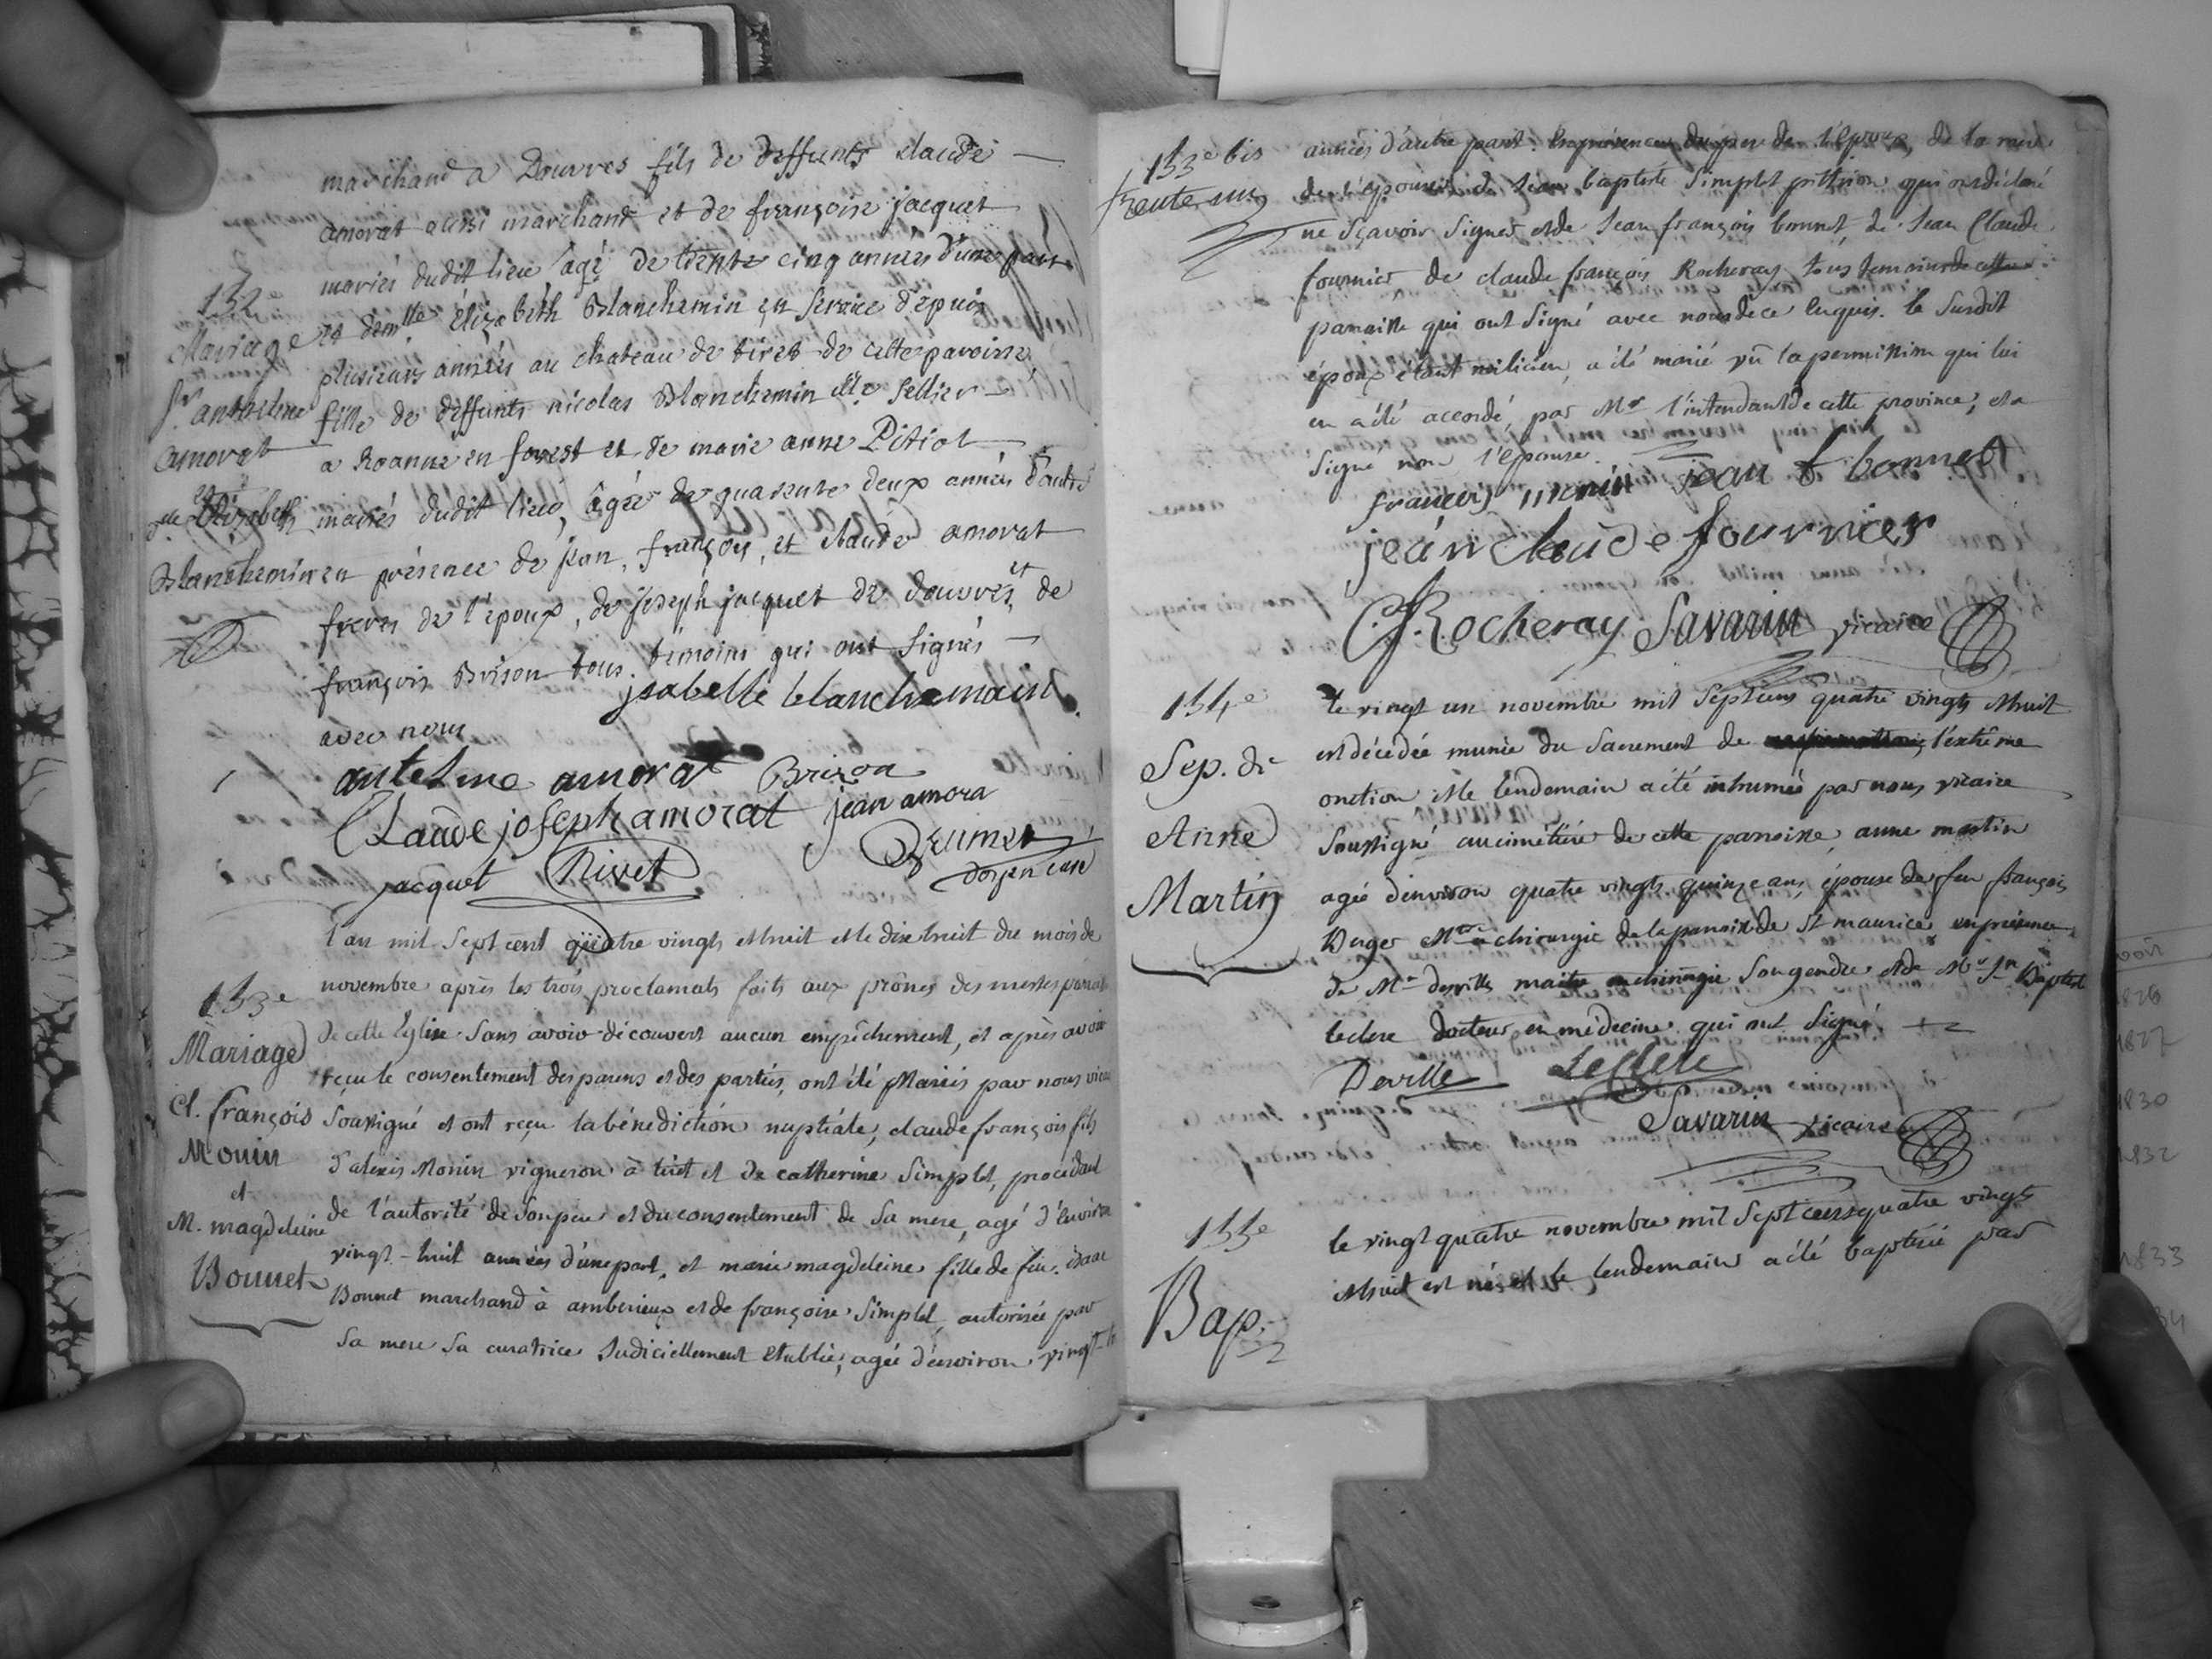 marchand a Douvres fils de deffunts claude
amorat aussi marchand et de françoise jacquet
mariés dudit lieu agé de trente cinq années d'une part
et dem.lle élizabeth Blanchemin en service depuis
plusieurs années au chateau de tiret de cette paroisse
fille de deffunts nicolas Blanchemin me sellier
a Roanne en forest et de marie anne Pitiot
mariés dudit lieu, agée de quarente deux années d'autre
en présence de jean, françois, et claude amorat
freres de l'époux, de joseph jacquet de douvres, et de
françois Brison tous témoins qui ont signés
avec nous
132e
Mariage
Sr. antelme
amorat
et
de Elizabeth
Blanchemin
jsabelle blanchemain
antelme amorat Brizon
Claude joseph amorat jean amora
jacquet Nivet
doyen curé
l'an mil sept cent quatre vingts et huit et le dix huit du mois de
novembre après les trois proclamats faits aux prônes des messes paroiss
de cette Eglise sans avoir découvert aucun empêchement, et après avoir
reçu le consentement des parens et des parties, ont été Mariés par nous vicai
soussigné et ont reçu la bénédiction nuptiale, claude françois fils
d'alexis Monin vigneron à tiret et de catherine Simplet, procédant
de l'autorité de son pere et du consentement de sa mere, agé d'environ
vingt-huit années d'une part, et marie magdeleine fille de feu isaac
Bonnet marchand à amberieux et de françoise Simplet, autorisée par
sa mere sa curatrice Judiciellement établie, agée d'environ vingt-h
133e
Mariage
Cl. françois
Monin
et
M. magdeleine
Bonnet
133e bis
trente un
années d'autre part. En présence du pere de l'époux, de la mere
de l'épouse, de Jean baptiste Simplet pittion qui ont déclaré
ne sçavoir signer et de Jean françois bonnet, de Jean Claude
fournier de claude françois Rocheray tous temoins de cette
paroisse qui ont signé avec nous de ce enquis. le susdit
époux étant milicien, a été marié vû la permission qui lui
en a été accordé, par Mr l'intendant de cette province, et a
signé non l'épouse.
françois monin jean f bonnet
jean claude fournier
C.f. Rocheray Savarin vicaire
134e
Sep. de
Anne
Martin
le vingt un novembre mil sept cens quatre vingts et huit
est décédée munie du sacrement de l'extrême
onction et le lendemain a été inhumée par nous vicaire
soussigné au cimétière de cette paroisse, anne martin
agée d'environ quatre vingts quinze ans, épouse de feu françois
Berger Mtre en chirurgie de la paroisse de St maurice, en présence
de Mr deville maitre en chirurgie son gendre et de Mr Jn Baptiste
leclerc docteur en médecine qui ont signé
Deville Leclerc
Savarin vicaire
135e
Bap.
le vingt quatre novembre mil sept cens quatre vingts
et huit est né et le lendemain a été baptisé par
1826
1827
1830
1832
1833
34